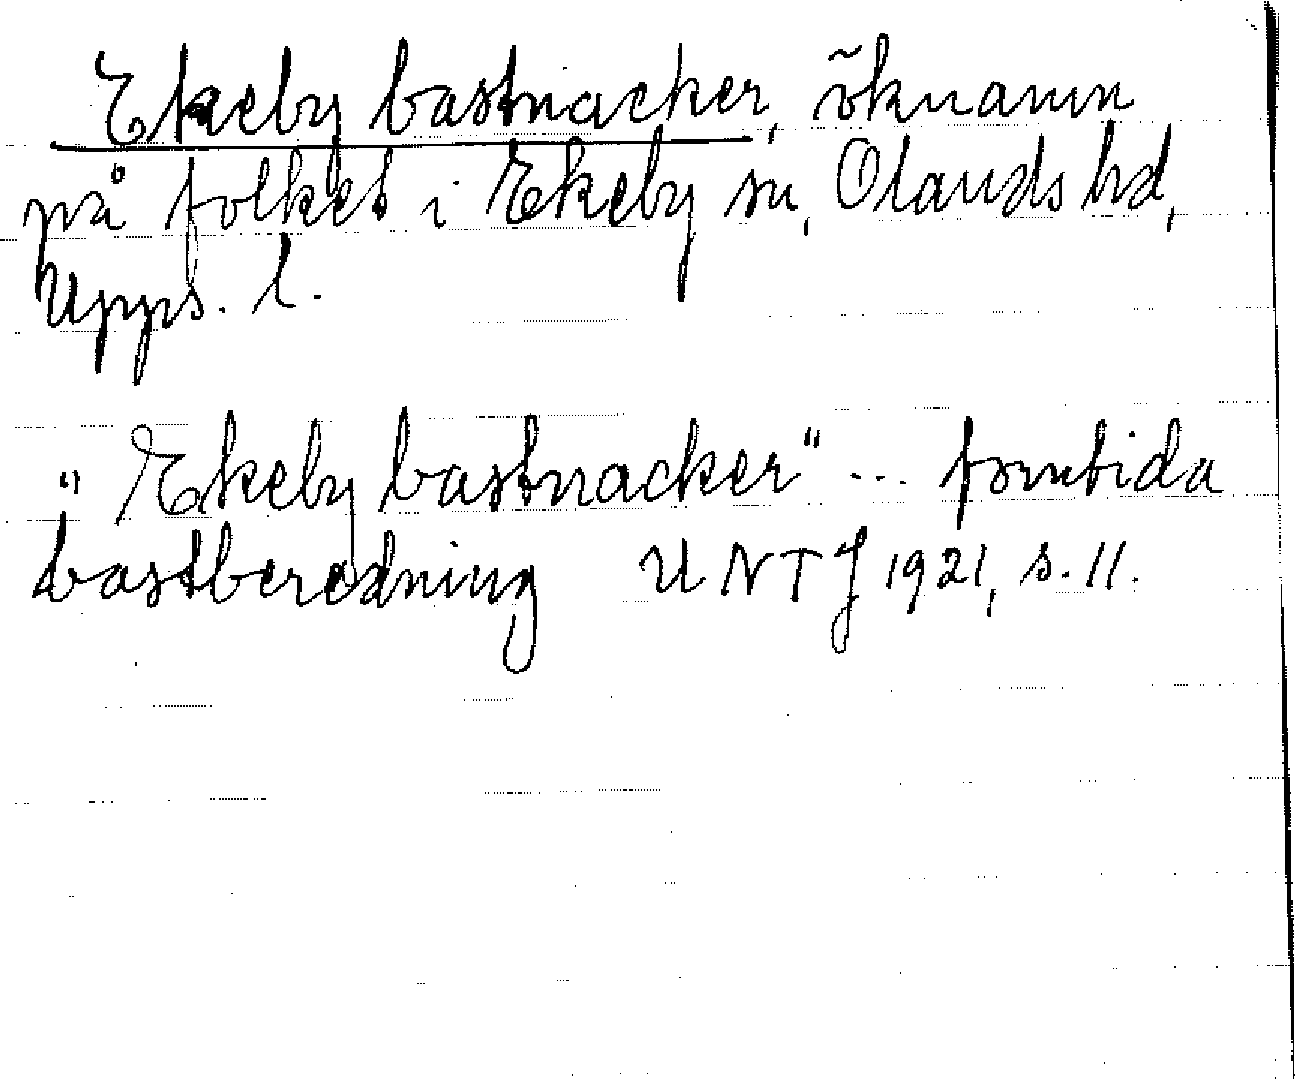 Ekeby bastnacker, öknamn
på folket i Ekeby sn, Olands hd,
Upps. l.
"Ekeby bastnacker" ... forntida
bastberedning UNTJ 1921, s. 11.